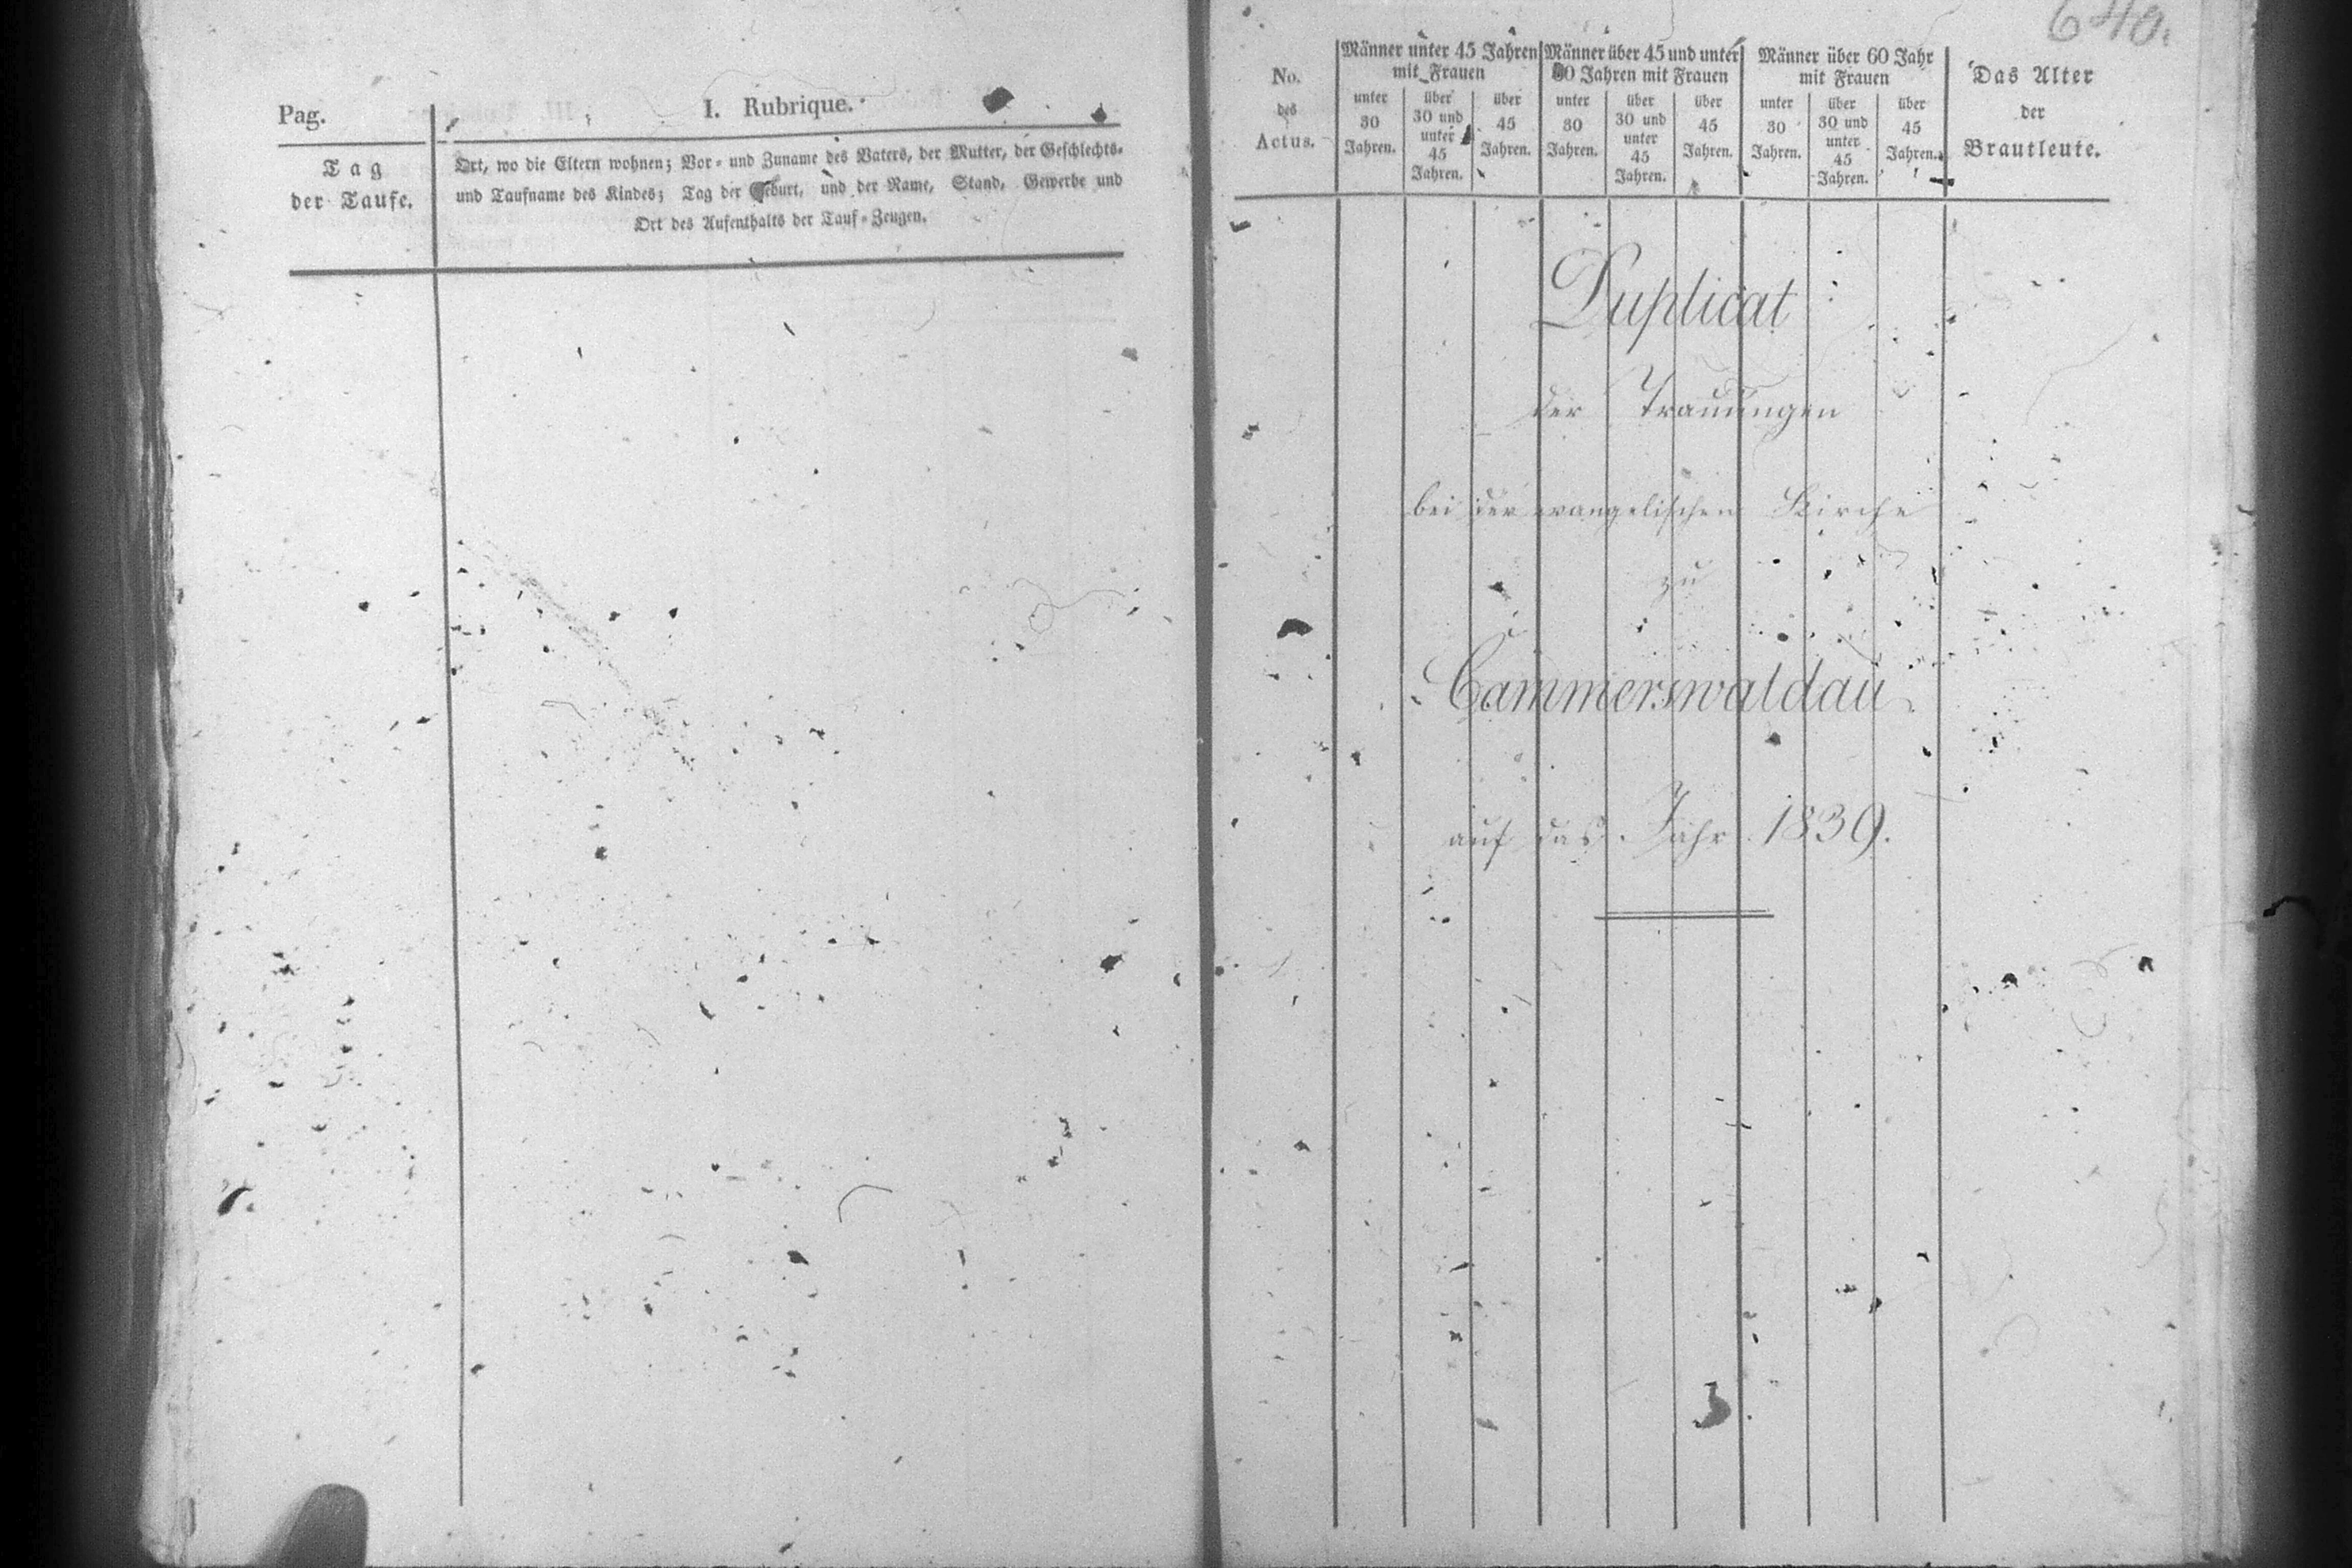 Pag.
I. Rubrique.
Tag
der Taufe.
Ort, wo die Eltern wohnen; Vor- und Zuname des Vaters, der Mutter, der Geschlechts-
und Taufname des Kindes; Tag der Geburt, und der Name, Stand, Gewerbe und
Ort des Aufenthalts der Tauf-Zeugen.
640.
No.
des
Actus.
Männer unter 45 Jahren
mit Frauen
unter
30
Jahren.
über
30 und
unter
45
Jahren.
über
45
Jahren.
Männer über 45 und unter
60 Jahren mit Frauen
unter
30
Jahren.
über
30 und
unter
45
Jahren.
über
45
Jahren.
Männer über 60 Jahr
mit Frauen
unter
30
Jahren.
über
30 und
unter
45
Jahren.
über
45
Jahren.
Das Alter
der
Brautleute.
Duplicat
der Trauungen
bei der evangelischen Kirche
zu
Cammerswaldau
auf das Jahr 1839.